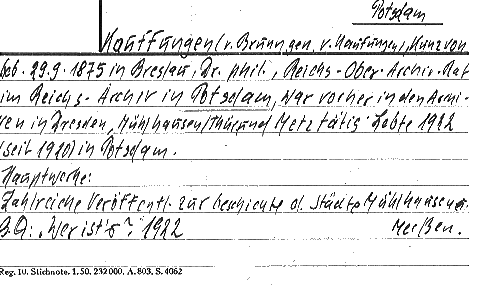 Potsdam
Kauffungen (v. Brüningen, v. Kauffungen), Kunz von
Geb. 29.9.1875 in Breslau, Dr. phil., Reichs-Ober-Archiv-Rat
im Reichs-Archiv in Potsdam, war vorher in den Archi-
ven in Dresden, Mühlhausen/Thür. und Metz tätig. Lebte 1922
(seit 1920) in Potsdam.
Hauptwerke:
Zahlreiche Veröffentl. zur Geschichte d. Städte Mühlhausen u.
Meißen.
"Wer ist's", 1922
Reg. IV. Stichnote. 1. 50. 232 000. A. 803. S. 4062